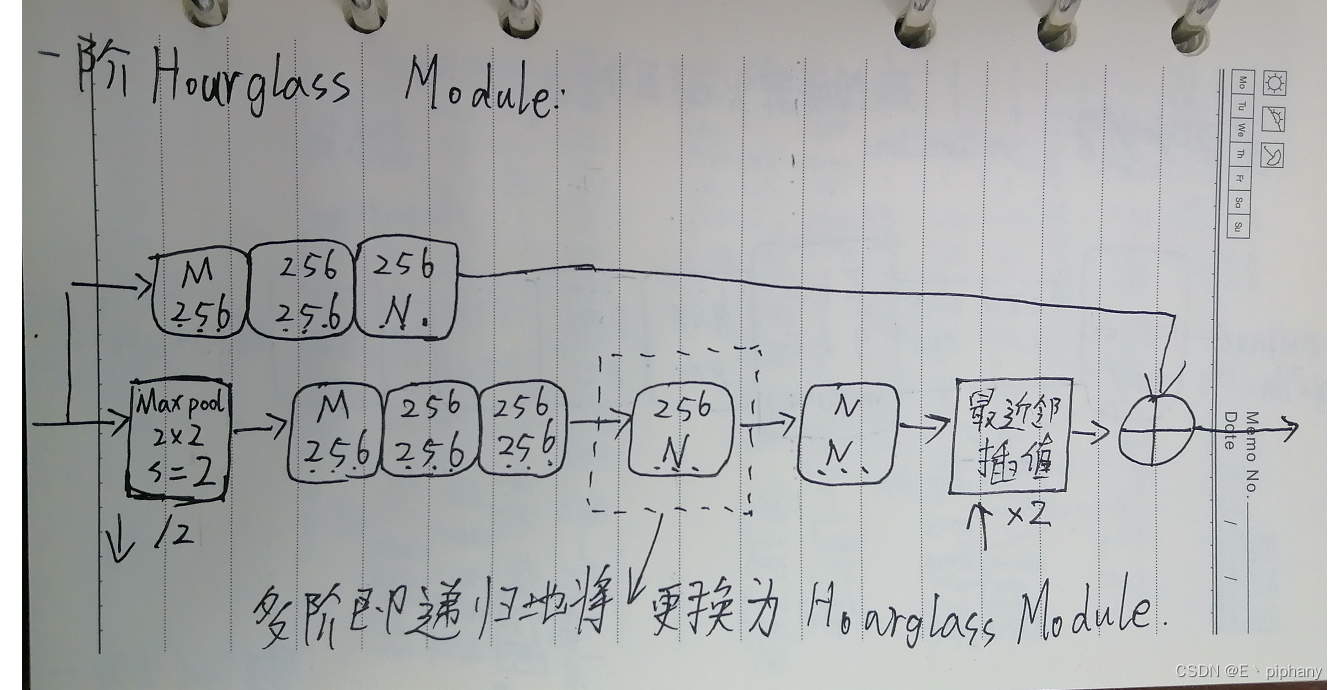 一阶 Hourglass Module:
Mo Tu We Th Fr Sa Su
M 256 256
256 256 N.
Maxpool
2×2
s=2
M 256 256
256 256 256
256
N.
N
N
最近邻
插值
↓ /2
↑ ×2
Memo No.
Date / /
多阶即递归地将 更换为 Hourglass Module.
CSDN @E丶piphany